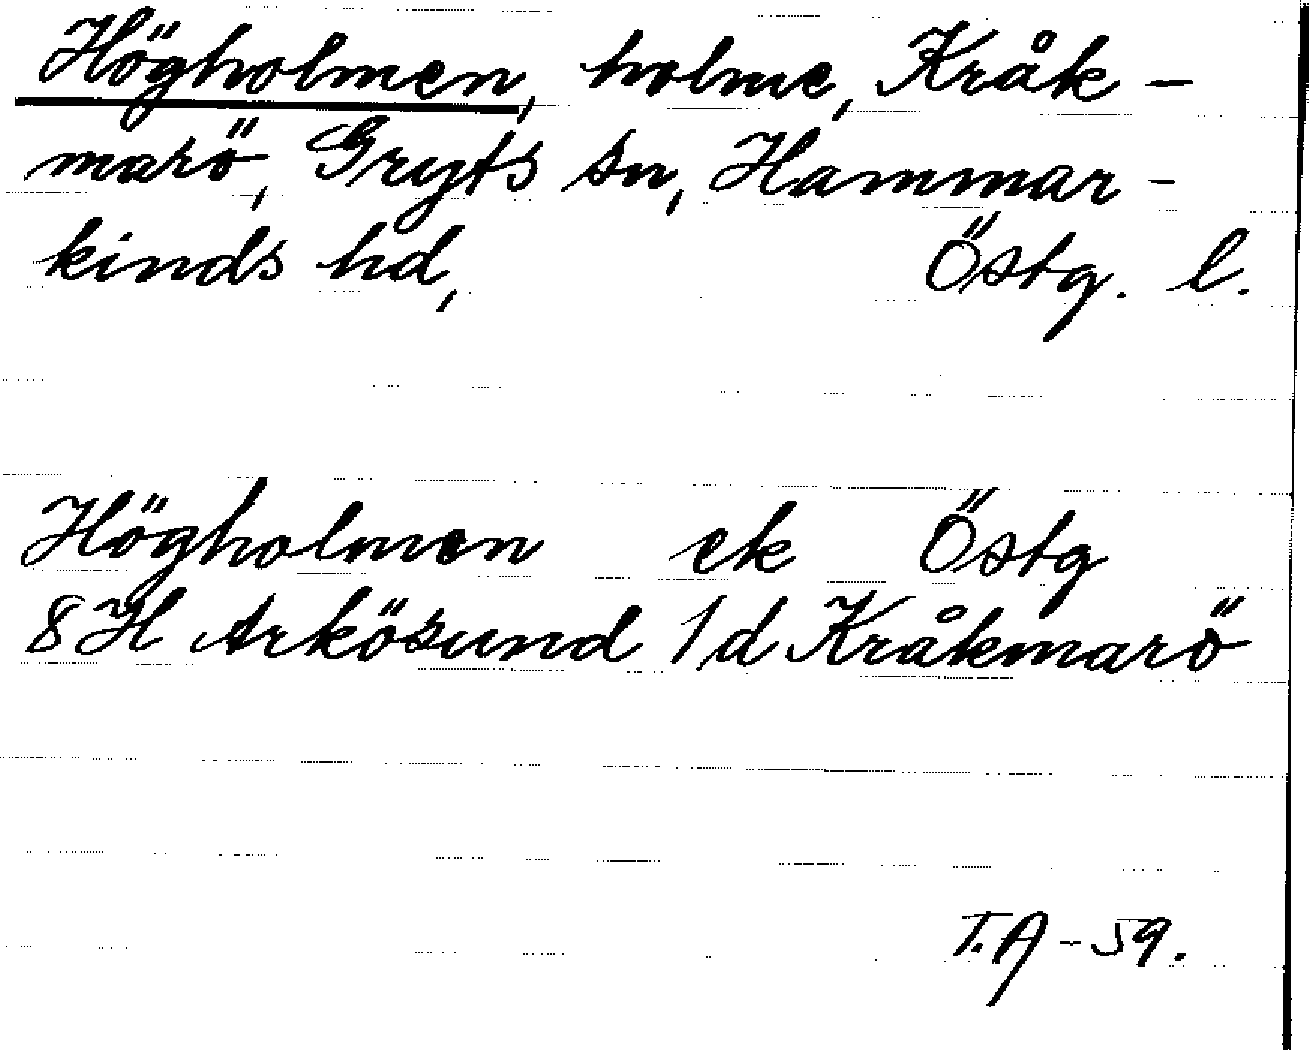 Högholmen, holme, Kråk-
marö, Gryts sn, Hammar-
kinds hd, Östg. l.
Högholmen ek Östg
8H Arkösund 1d Kråkmarö
T.A - 59.